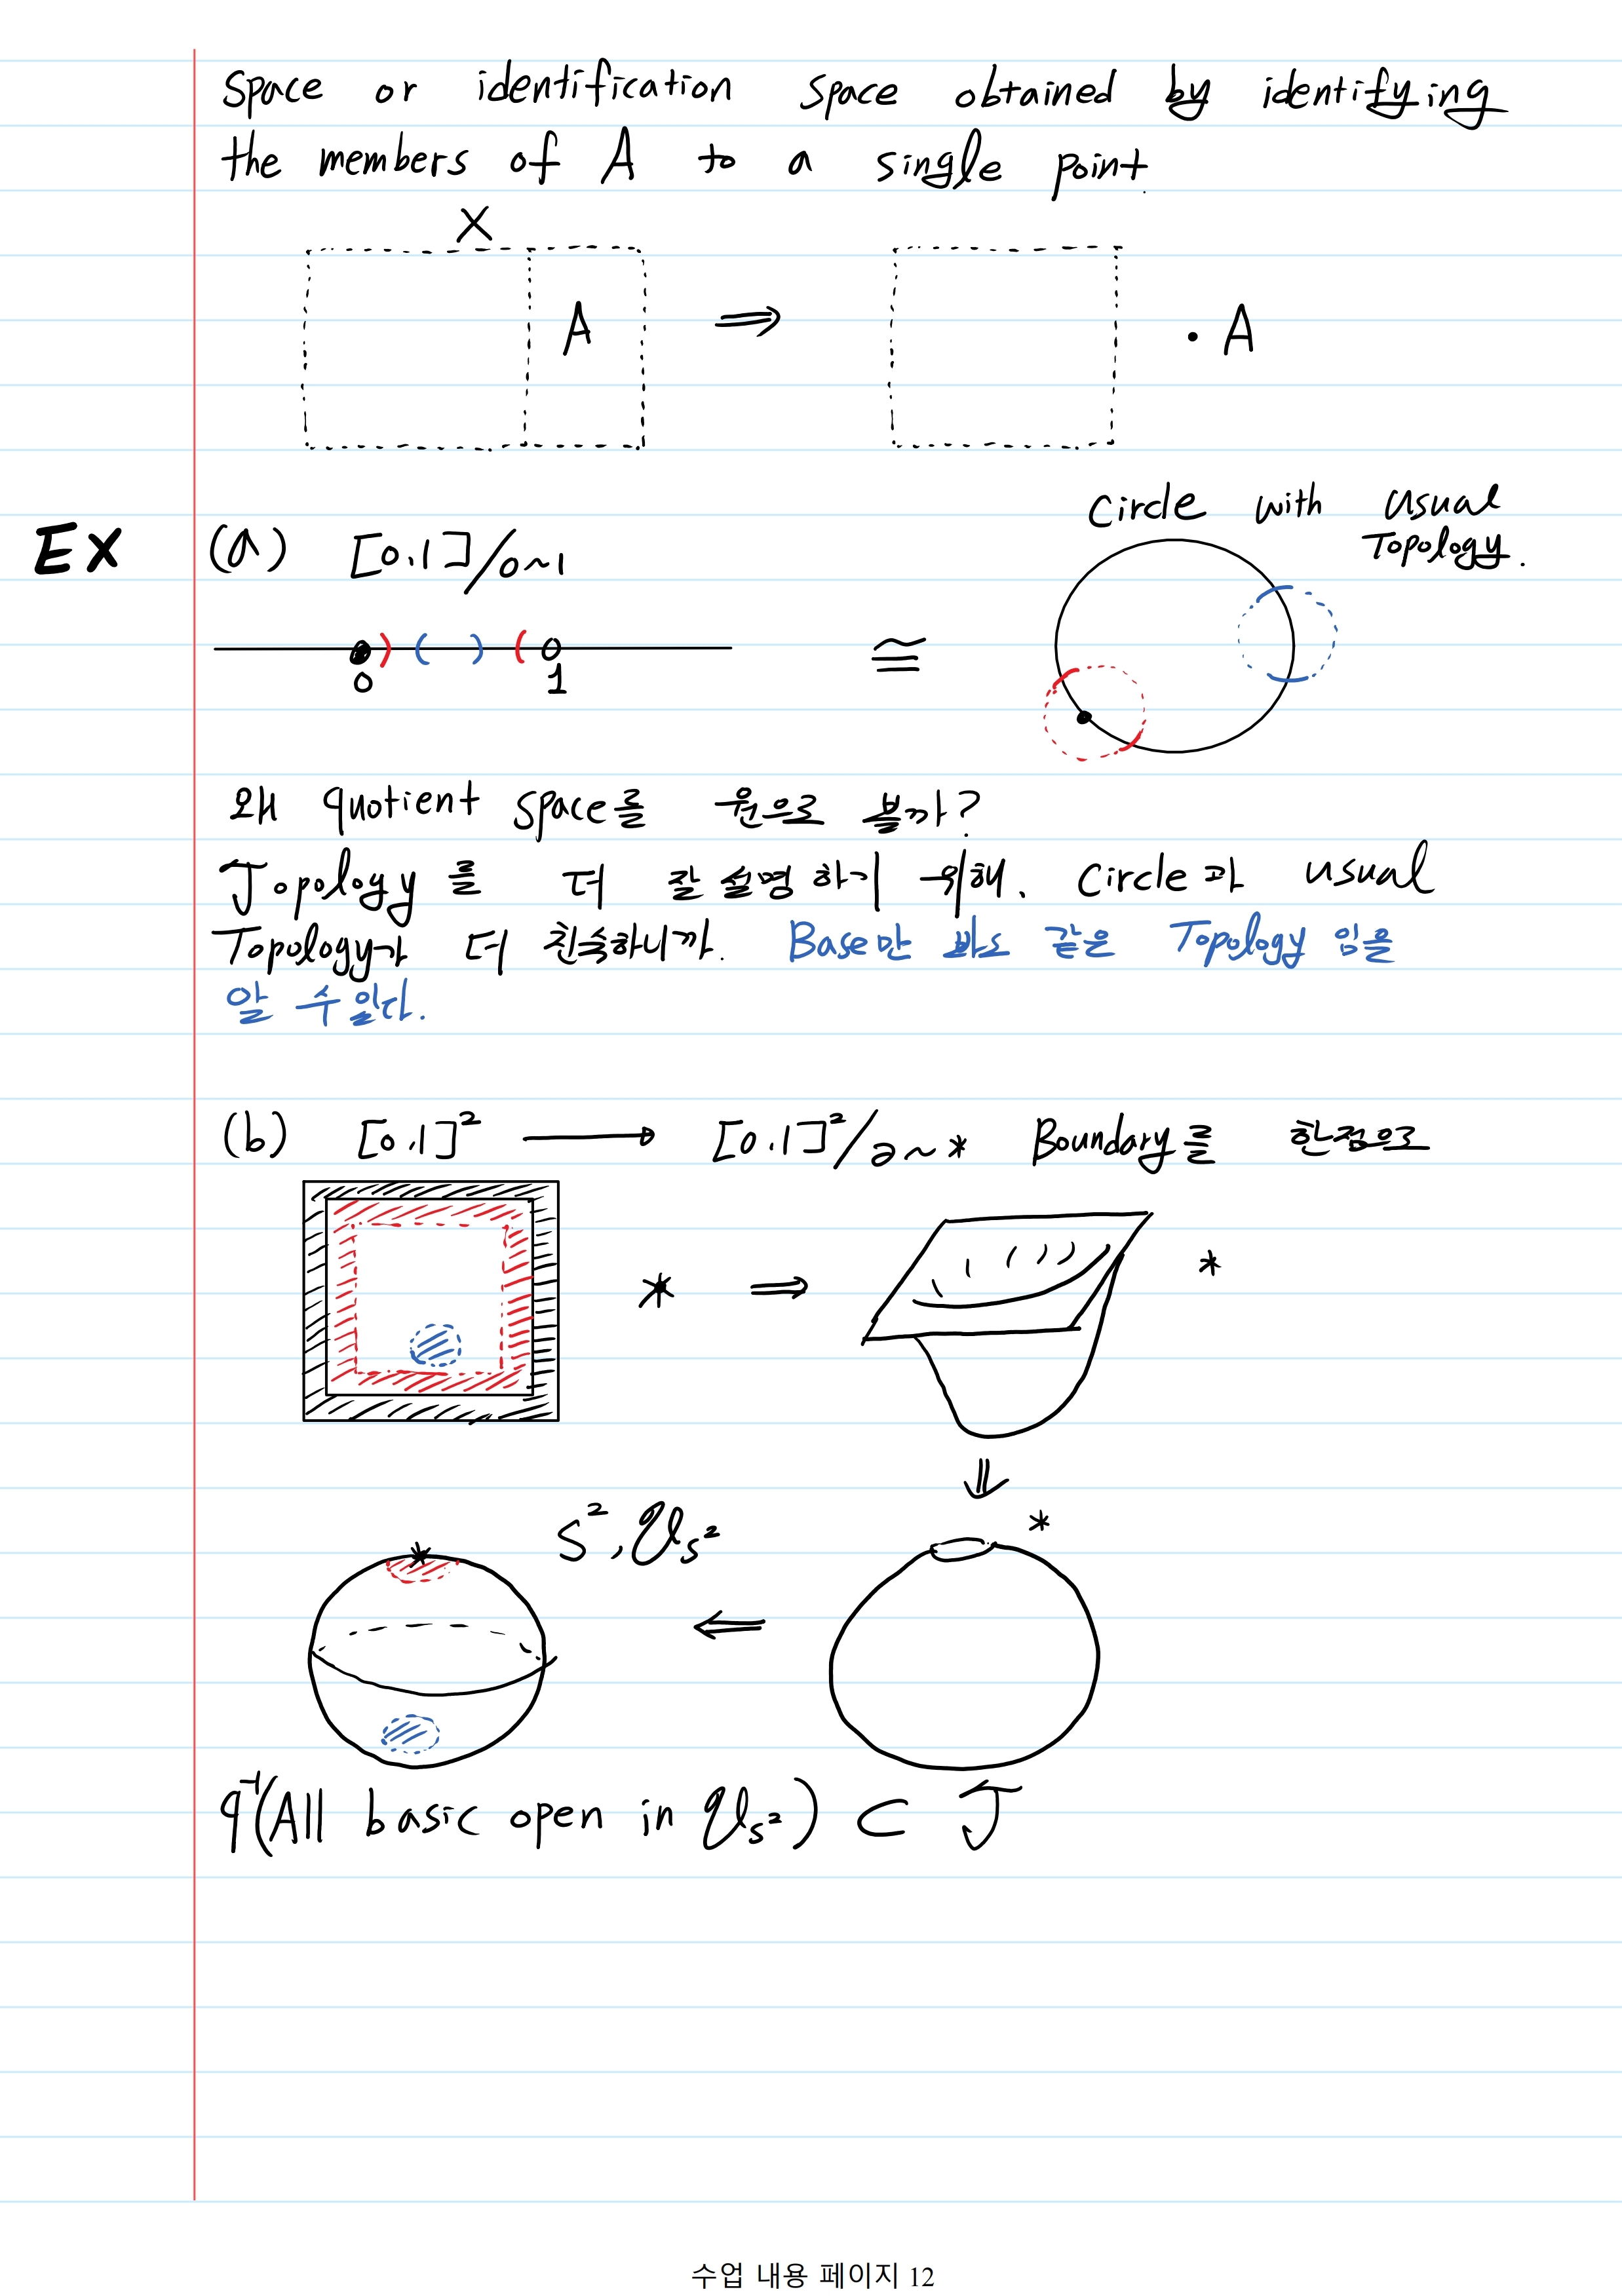 space or identification space obtained by identifying
the members of A to a single point.
X
A ⇒ · A
EX (a) [0,1]/0~1
Circle with usual
Topology.
0 1 ≅
왜 quotient space를 원으로 볼까?
Topology를 더 잘 설명하기 위해. Circle과 usual
Topology가 더 친숙하니까. Base만 봐도 같은 Topology 임을
알 수 있다.
(b) [0,1]² → [0,1]²/∂~* Boundary를 한점으로
* ⇒ *
⇓
S², 𝒰s² *
* ⇐
q⁻¹(All basic open in 𝒰s²) ⊂ 𝒥
수업 내용 페이지 12